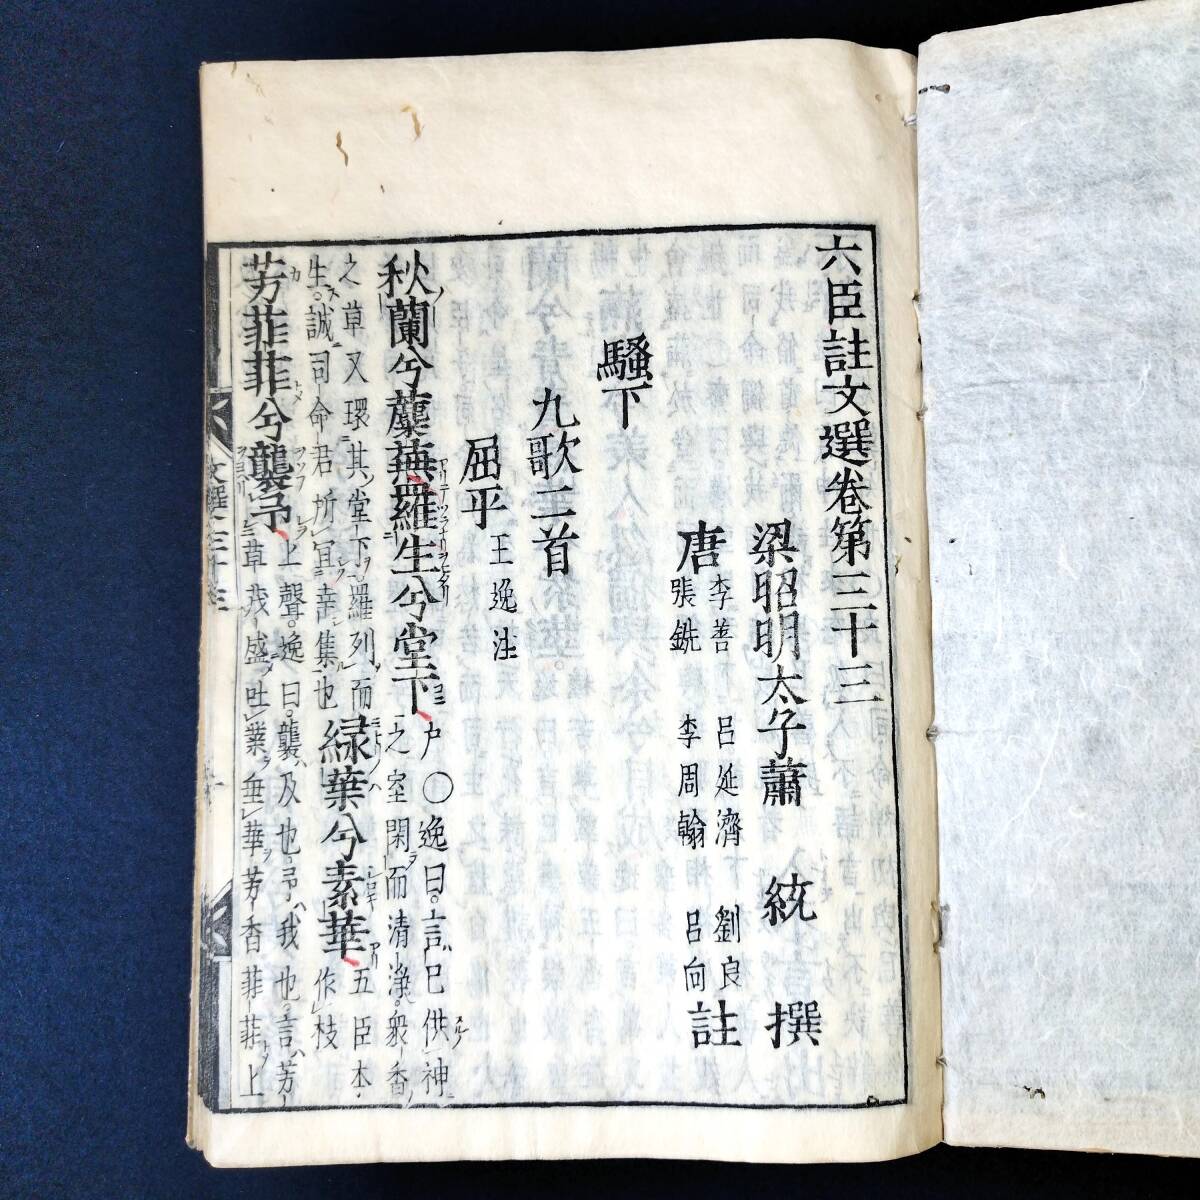 六臣註文選卷第三十三
梁昭明太子蕭統撰
唐李善呂延濟劉良
張銑李周翰呂向註
騷下
九歌二首
屈平王逸注
秋蘭兮蘪蕪羅生兮堂下戶〇逸曰言巳供神
之室閑而清淨衆香
之草又環其堂下羅列而
生誠司命君所宜幸集也
緑葉兮素華五臣本
作枝
芳菲菲兮襲予上聲逸曰襲及也予我也言芳
草茂盛吐葉垂華芳香菲菲上